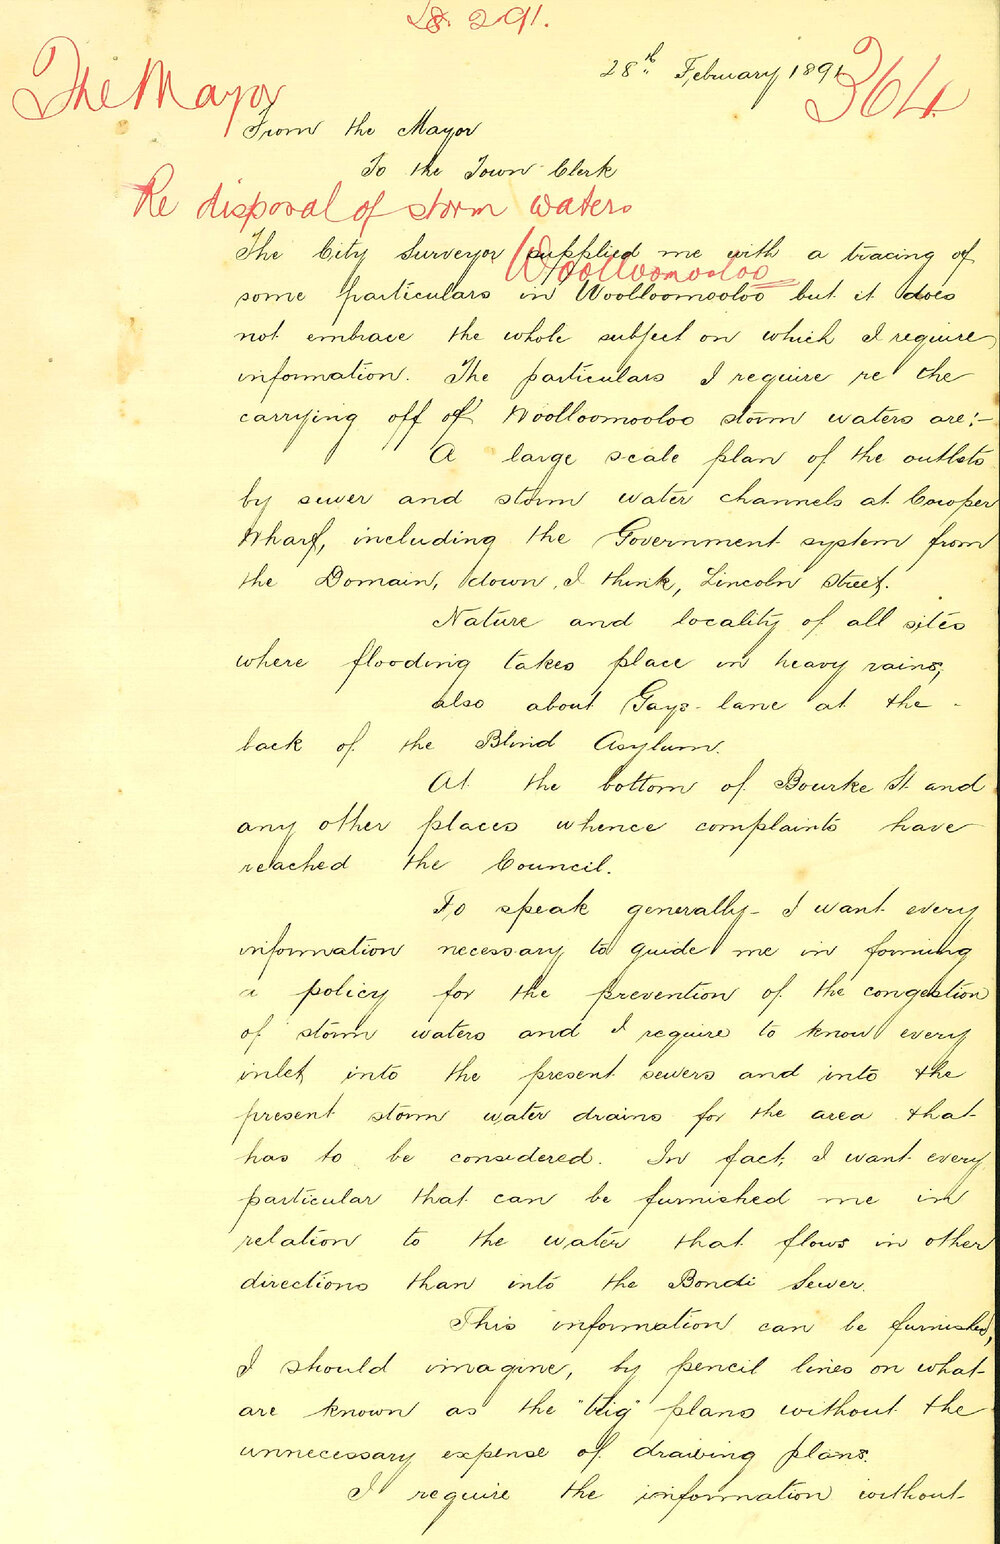 28.2.91.
28th February 1891
The Mayor
364
From the Mayor
To the Town Clerk
Re disposal of storm waters
Woolloomooloo
The City Surveyor supplied me with a tracing of
some particulars in Woolloomooloo but it does
not embrace the whole subject on which I require
information. The particulars I require re the
carrying off of Woolloomooloo storm waters are:-
A large scale plan of the outlets
by sewer and storm water channels at Cowper
Wharf, including the Government system from
the Domain, down, I think, Lincoln Street.
Nature and locality of all sites
where flooding takes place in heavy rains,
also about Gays lane at the -
back of the Blind Asylum.
At the bottom of Bourke St and
any other places whence complaints have
reached the Council.
To speak generally - I want every
information necessary to guide me in forming
a policy for the prevention of the congestion
of storm waters and I require to know every
inlet into the present sewers and into the
present storm water drains for the area that
has to be considered. In fact, I want every
particular that can be furnished me in
relation to the water that flows in other
directions than into the Bondi Sewer.
This information can be furnished,
I should imagine, by pencil lines on what
are known as the "big" plans without the
unnecessary expense of drawing plans.
I require the information without